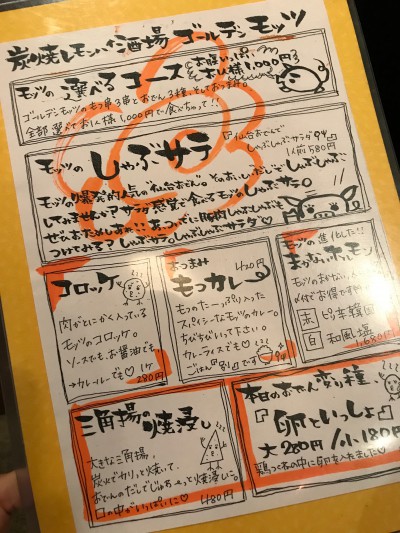 炭焼レモンパイ酒場 ゴールデンモッツ
モッツの 選べるコース お腹いっぱい お1人様1,000円
ゴールデンモッツのもつ串3串とおでん3種、そしておつまみ。
全部選べてお1人様1,000円で食べちゃって!!
モッツの しゃぶサラ
『仙台おでんで しゃぶしゃぶサラダ』
1人前 580円
モッツの爆発的人気の仙台おでん。そのおいしいだしでしゃぶしゃぶ
してみませんか?サラダ感覚で食べるモッツしゃぶサラ。
ぜひお試しあれ!!
しゃぶサラ。しゃぶしゃぶサラダ♡
コロッケ
肉がとにかく入っている
モッツのコロッケ。
ソースでも、お醤油でも
カレールーでも♡ 1ケ
280円
おつまみ もつカレー 420円
もつのたーっぷり入った
スパイシーなモッツのカレー。
ちびちびいって下さい。
カレーライスでも♡
ごはん『別』です
モッツの進化した!!
まかないホルモン
モッツのまかない
赤 ピリ辛韓国
白 和風塩
1,680円
三角揚の焼浸し
大きな三角揚、
炭火でカリっと焼いて、
おでんのだしでじゅわーっと焼浸しに。
口の中がいっぱいに♡
480円
本日のおでん変り種、
『卵といっしょ』
大280円/小180円
鶏つくねの中に卵を入れました♡